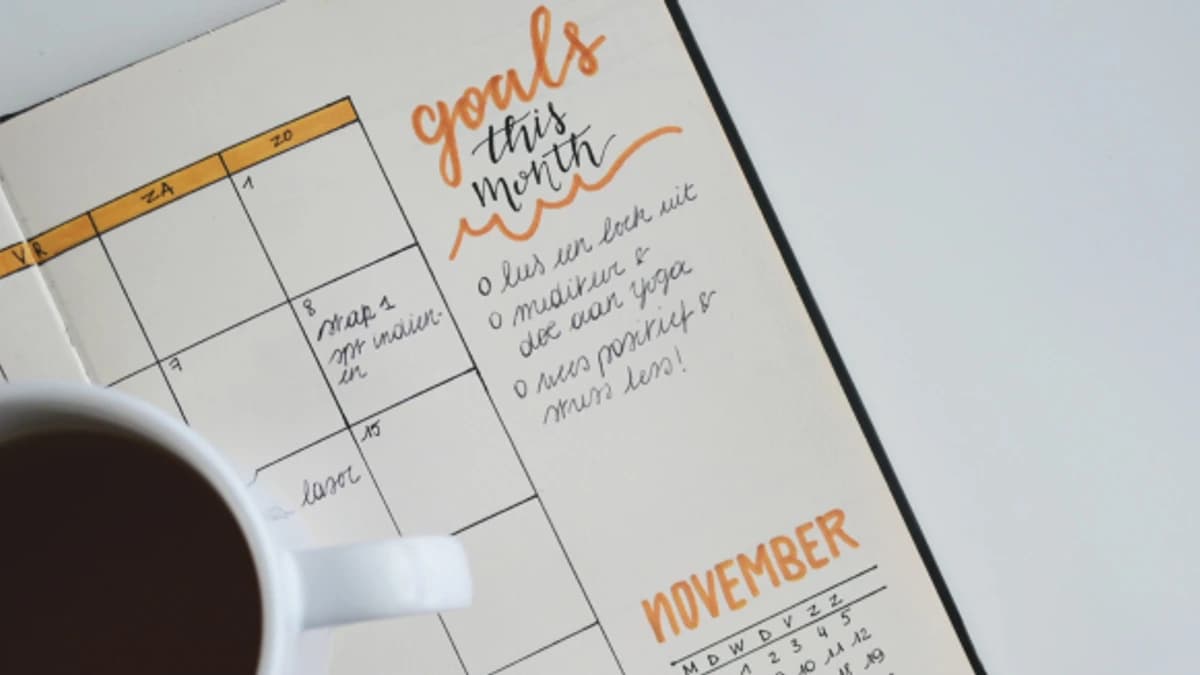 goals
this
month
VR ZA ZO
1
7
8
stap 1
spt indien-
en
15
laser
o lees een boek uit
o mediteer &
doe aan yoga
o wees positief &
stress less!
NOVEMBER
M D W D V Z Z
1 2 3 4 5
10 11 12
18 19